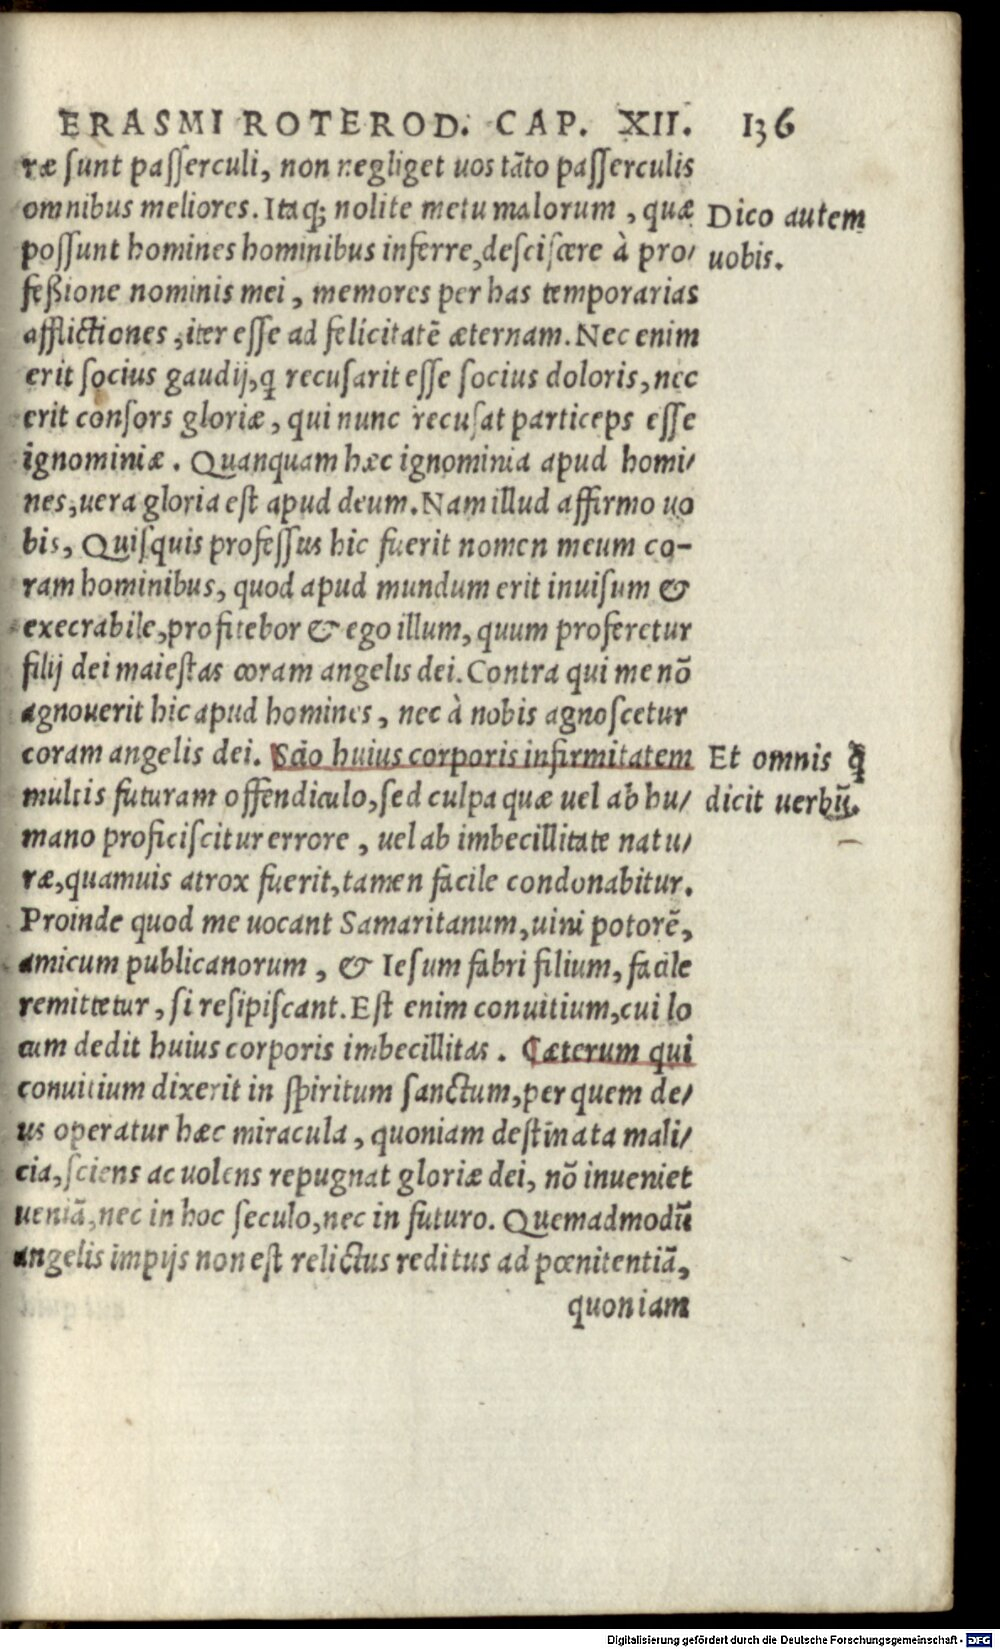 ERASMI ROTEROD. CAP. XII. 136
ræ ſunt paſſerculi, non negliget uos tãto paſſerculis
omnibus meliores. Itaq; nolite metu malorum, quæ
poſſunt homines hominibus inferre, deſciſcere à pro/
feßione nominis mei, memores per has temporarias
afflictiones, iter eſſe ad felicitatẽ æternam. Nec enim
erit ſocius gaudij, q recuſarit eſſe ſocius doloris, nec
erit conſors gloriæ, qui nunc recuſat particeps eſſe
ignominiæ. Quanquam hæc ignominia apud homi/
nes, uera gloria eſt apud deum. Nam illud affirmo uo
bis, Quiſquis profeſſus hic fuerit nomen meum co-
ram hominibus, quod apud mundum erit inuiſum &
execrabile, profitebor & ego illum, quum proferetur
filij dei maieſtas coram angelis dei. Contra qui me nõ
agnouerit hic apud homines, nec à nobis agnoſcetur
coram angelis dei. Scio huius corporis infirmitatem
multis futuram offendiculo, ſed culpa quæ uel ab hu/
mano proficiſcitur errore, uel ab imbecillitate natu/
ræ, quamuis atrox fuerit, tamen facile condonabitur.
Proinde quod me uocant Samaritanum, uini potorẽ,
amicum publicanorum, & Ieſum fabri filium, facile
remittetur, ſi reſipiſcant. Eſt enim conuitium, cui lo
cum dedit huius corporis imbecillitas. Cæterum qui
conuitium dixerit in ſpiritum ſanctum, per quem de/
us operatur hæc miracula, quoniam deſtinata mali/
cia, ſciens ac uolens repugnat gloriæ dei, nõ inueniet
ueniã, nec in hoc ſeculo, nec in futuro. Quemadmodũ
angelis impijs non eſt relictus reditus ad pœnitentiã,
quoniam
Dico autem
uobis.
Et omnis q̃
dicit uerbũ.
Digitalisierung gefördert durch die Deutsche Forschungsgemeinschaft - DFG